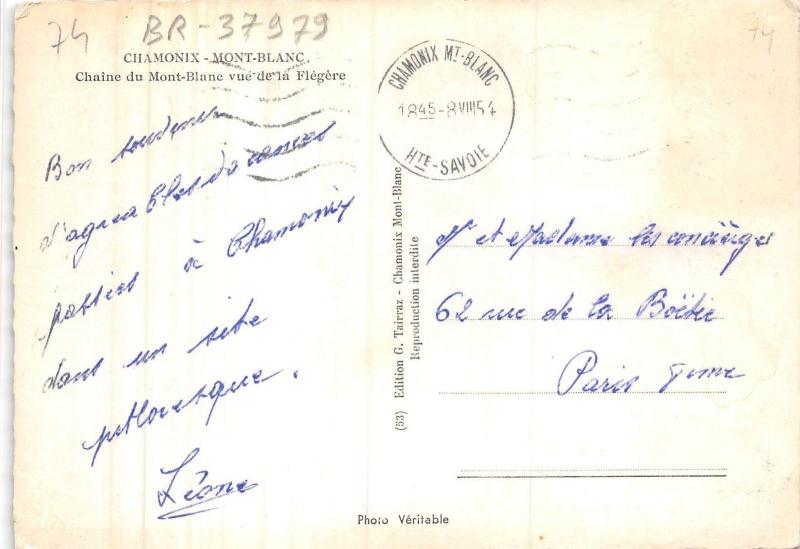 74
BR-37979
74
CHAMONIX - MONT-BLANC.
Chaîne du Mont-Blanc vue de la Flégère
Bon souvenir
d'agréables vacances
passées à Chamonix
dans un site
pittoresque.
Léone
(53) Edition G. Tairraz - Chamonix Mont-Blanc
Reproduction interdite
CHAMONIX MT-BLANC
1845-8VIII54
HTE-SAVOIE
Mr et Madame les concièrges
62 rue de la Boëtie
Paris
Photo Véritable